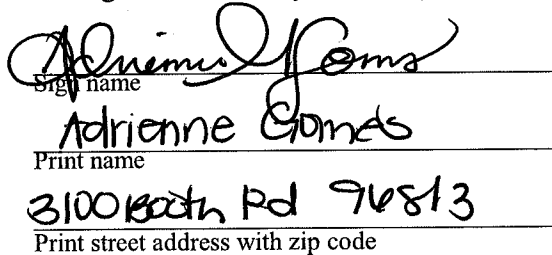 Adrienne Gomes
Sign name
Adrienne Gomes
Print name
3100 Booth Rd 96813
Print street address with zip code